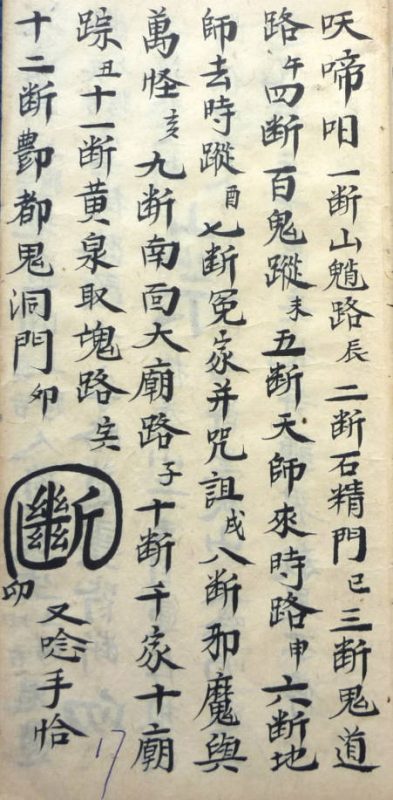 吠啼呾一断山魈路辰二断石精門巳三断鬼道
路午四断百鬼蹤未五断天師來時路申六断地
師去時蹤酉七断冤家并咒詛戌八断邪魔與
萬怪亥九断南面大廟路子十断千家十廟
踪丑十一断黄泉取魂路寅
十二断酆都鬼洞門卯
斷
卯
又唸手恰
17